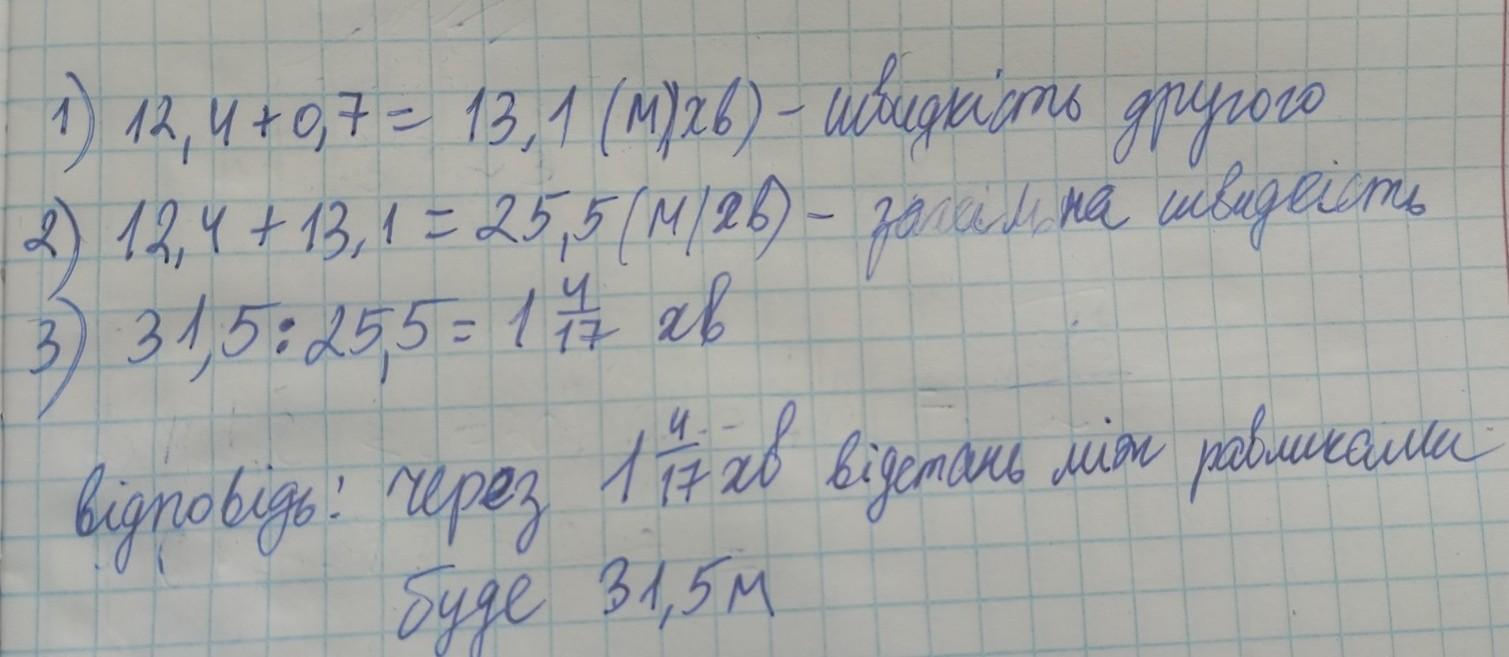 1) 12,4 + 0,7 = 13,1 (м/хв) - швидкість другого
2) 12,4 + 13,1 = 25,5 (м/хв) - загальна швидкість
3) 31,5 : 25,5 = 1 4/17 хв
відповідь: через 1 4/17 хв відстань між равликами
буде 31,5 м